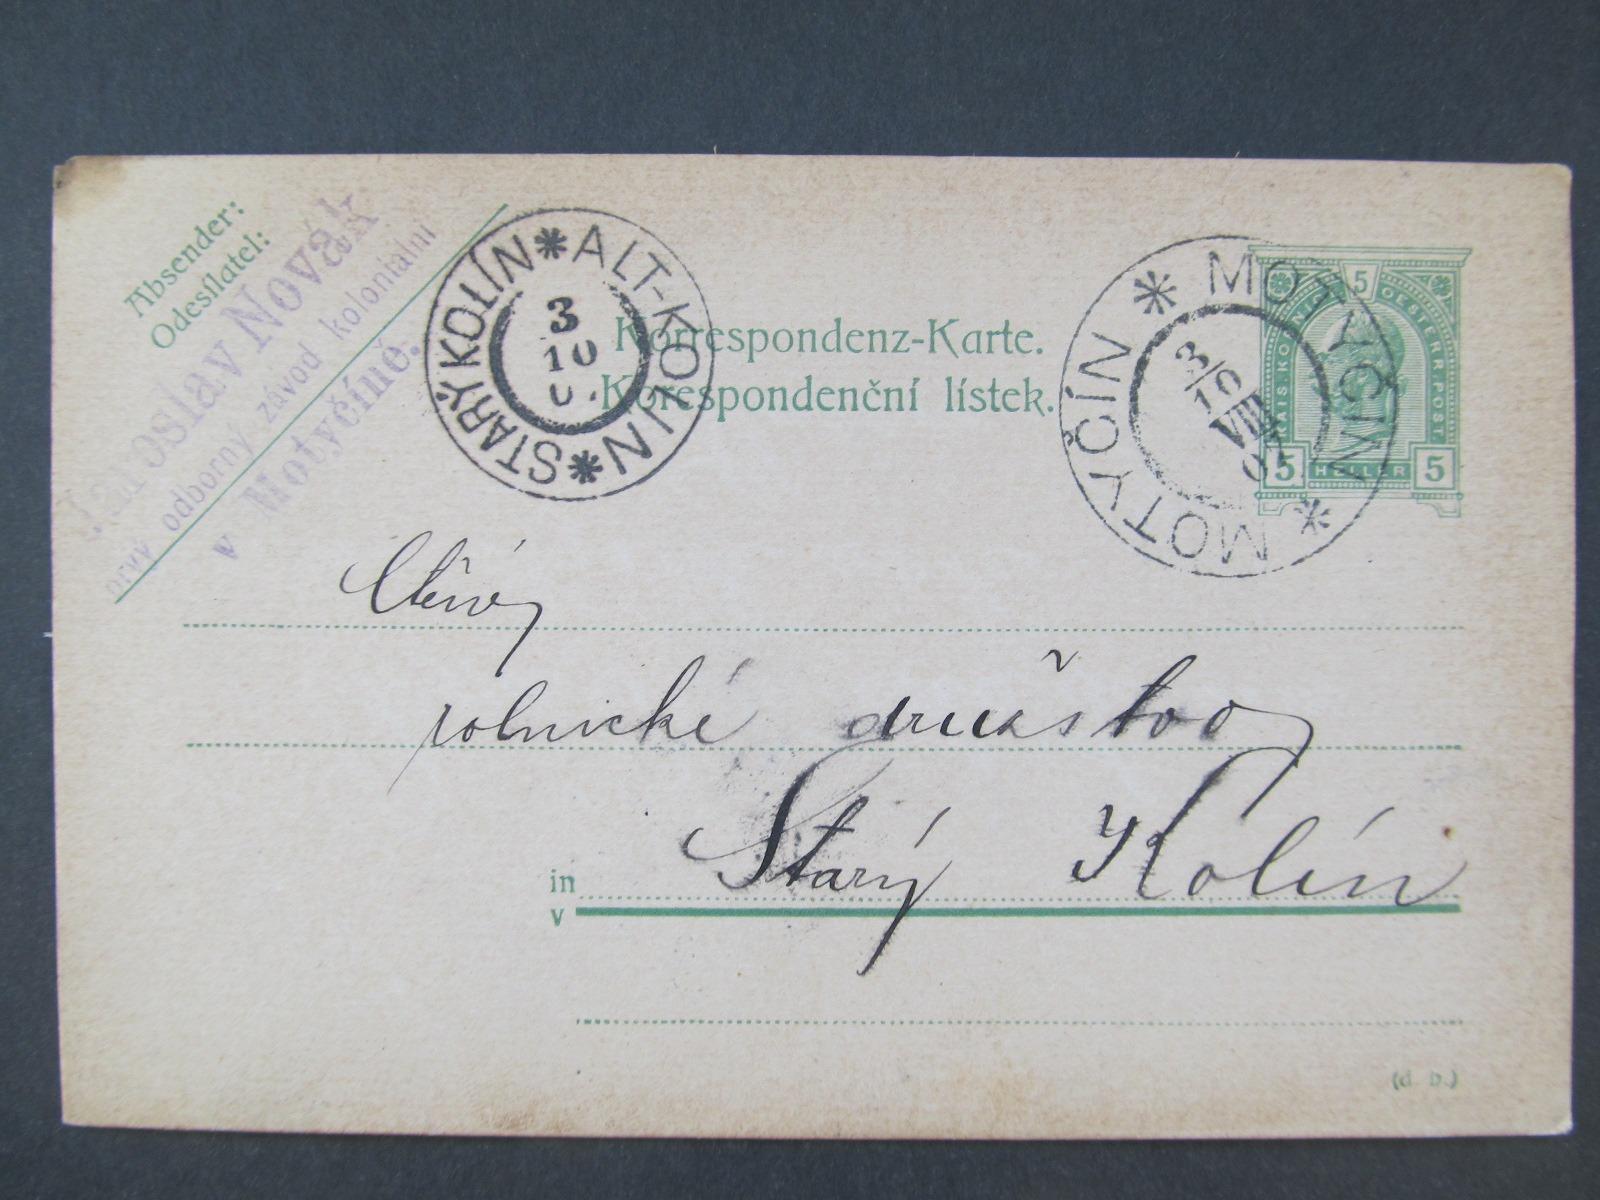 Absender:
Odesílatel:
Jaroslav Novák
prvý odborný závod koloniální
v Motyčíně.
STARÝ KOLÍN * ALT-KOLIN *
3
10
Korrespondenz-Karte.
Korespondenční lístek.
MOTYČÍN * MOTYČÍN *
3/10
VIII
07
5
KAIS. KÖNIGL. OESTERR. POST.
5 HELLER 5
Ctěný
rolnické družstvo
in
v
Starý Kolín
(d. b.)